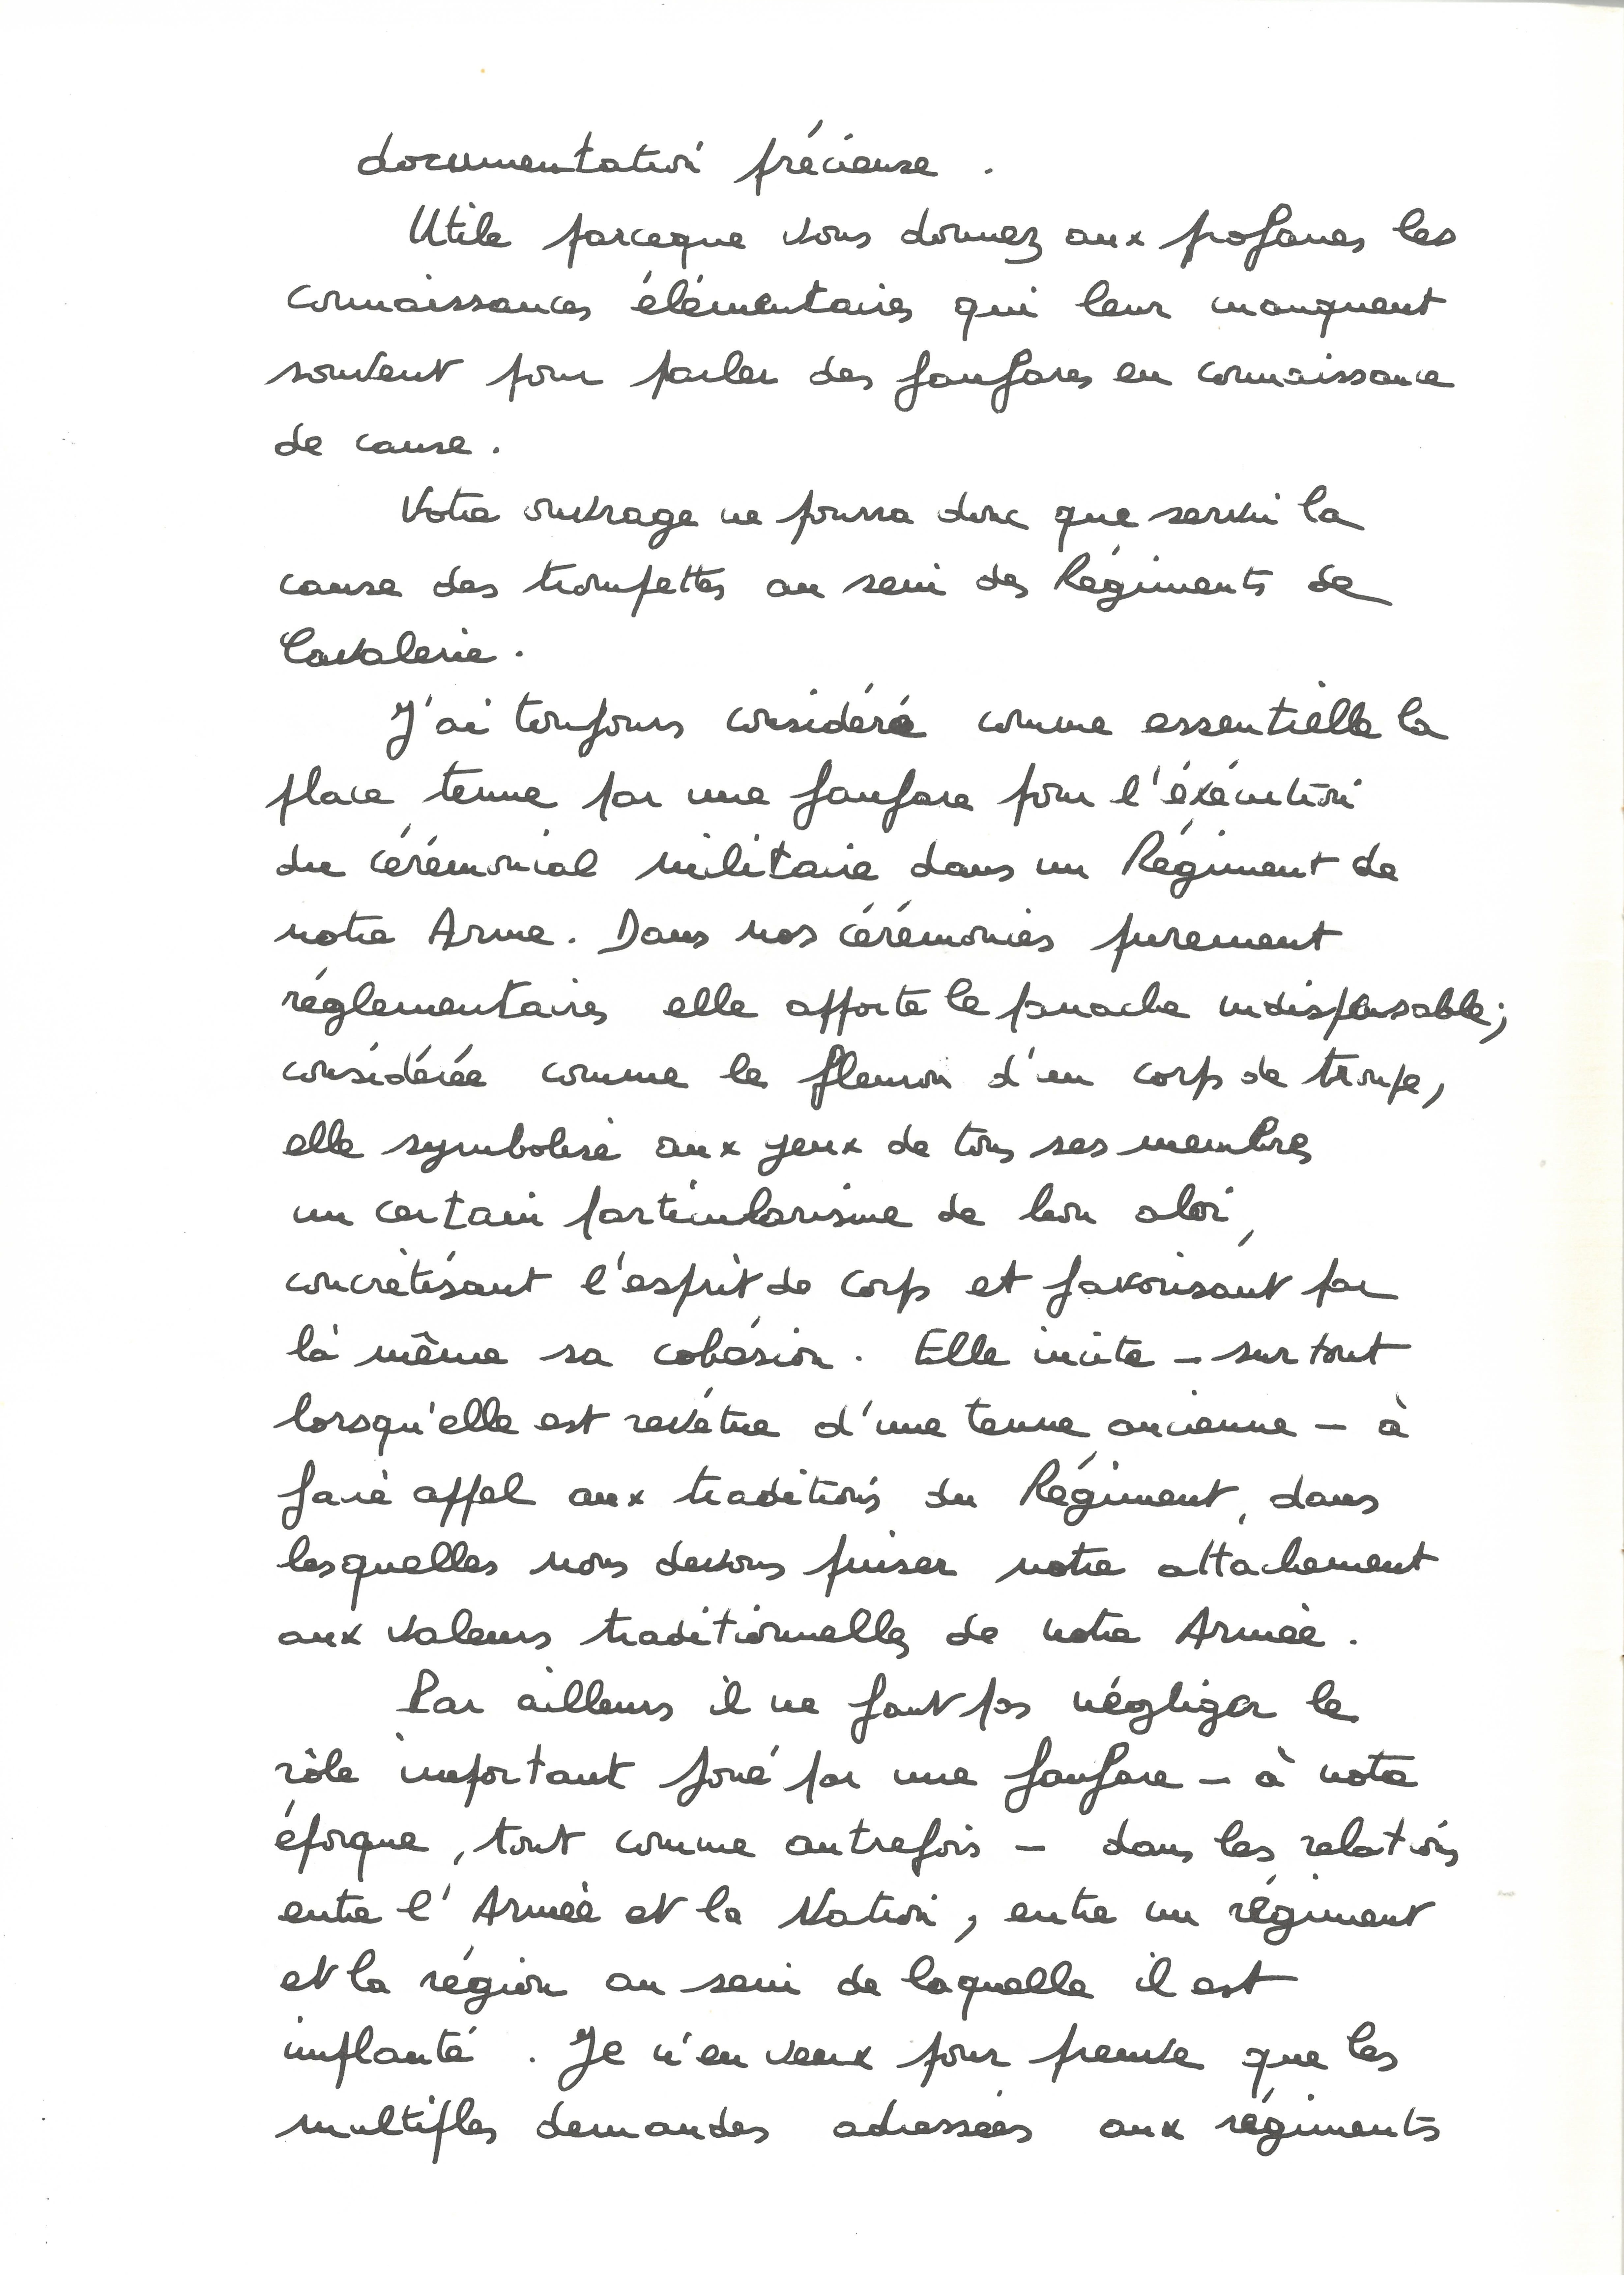 documentation précieuse .
Utile parceque vous donnez aux profanes les
connaissances élémentaires qui leur manquent
souvent pour parler des fanfares en connaissance
de cause .
Votre ouvrage ne pourra donc que servir la
cause des trompettes au sein des Régiments de
Cavalerie .
J'ai toujours considéré comme essentielle la
place tenue par une fanfare pour l'éxécution
du cérémonial militaire dans un Régiment de
notre Arme . Dans nos cérémonies purement
réglementaires elle apporte le panache indispensable ;
considérée comme le fleuron d'un corps de troupe ,
elle symbolise aux yeux de tous ses membres
un certain particularisme de bon aloi ,
concrétisant l'esprit de corps et favorisant par
là même sa cohésion . Elle incite - surtout
lorsqu'elle est revêtue d'une tenue ancienne - à
faire appel aux traditions du Régiment , dans
lesquelles nous devons puiser notre attachement
aux valeurs traditionnelles de notre Armée .
Par ailleurs il ne faut pas négliger le
rôle important joué par une fanfare - à notre
époque , tout comme autrefois - dans les relations
entre l'Armée et la Nation , entre un régiment
et la région au sein de laquelle il est
implanté . Je n'en veux pour preuve que les
multiples demandes adressées aux régiments